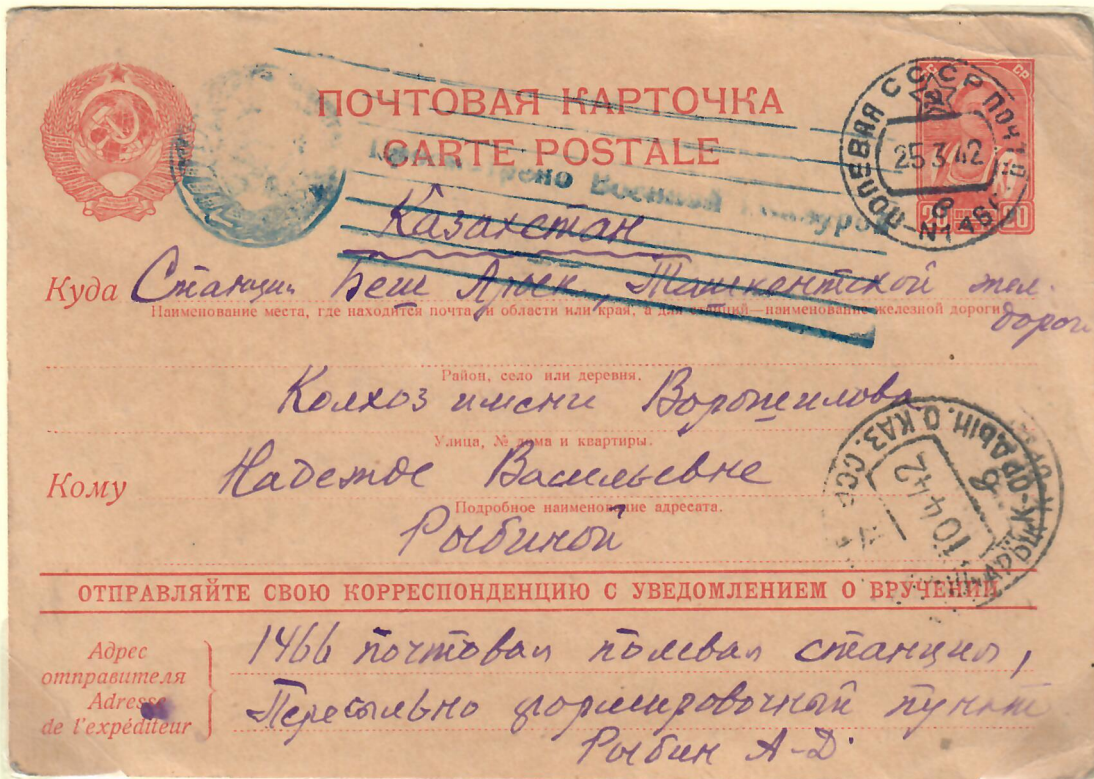 ПОЧТОВАЯ КАРТОЧКА
CARTE POSTALE
ПОЛЕВАЯ ПОЧТА СССР
25 3 42
20 20
Военной
Казахстан
Куда Станция Беш Арык, Ташкентской жел.
дороги
Наименование места, где находится почта, и области или края, а для станций—наименование железной дороги
Район, село или деревня.
Колхоз имени Ворошилова
Улица, № дома и квартиры.
Кому Надежде Васильевне
Подробное наименование адресата.
Рыбиной
КЗЫЛ-ОРДЫН. О КАЗ. ССР
10 4 42
ОТПРАВЛЯЙТЕ СВОЮ КОРРЕСПОНДЕНЦИЮ С УВЕДОМЛЕНИЕМ О ВРУЧЕНИИ
Адрес
отправителя
Adresse
de l'expéditeur
1466 почтовая полевая станция,
Пересыльно формировочный пункт
Рыбин А-Д.